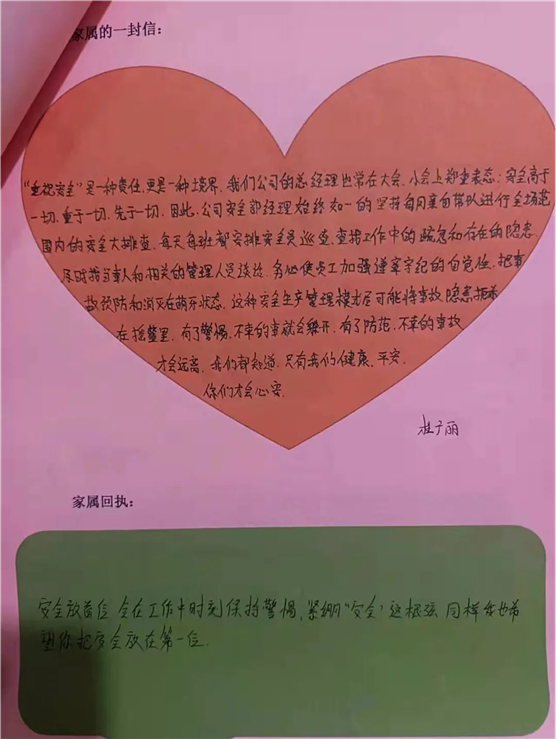 家属的一封信：
“重视安全”是一种责任，更是一种境界，我们公司的总经理也常在大会、小会上郑重表态：安全高于
一切，重于一切，先于一切。因此，公司安全部经理始终如一的坚持每周亲自带队进行全场范
围内的安全大排查，每天每班都安排安全员巡查，查找工作中的疏忽和存在的隐患
及时找当事人和相关的管理人员谈论，务必使员工加强遵章守纪的自觉性，把事
故预防和消灭在萌芽状态，这种安全生产管理模式尽可能将事故隐患扼杀
在摇篮里，有了警惕，不幸的事就会躲开，有了防范，不幸的事故
才会远离，我们都知道，只有我们健康，平安，
你们才会心安。
杜广丽
家属回执：
安全放首位，会在工作中时刻保持警惕，紧绷“安全”这根弦，同样我也希
望你把安全放在第一位。